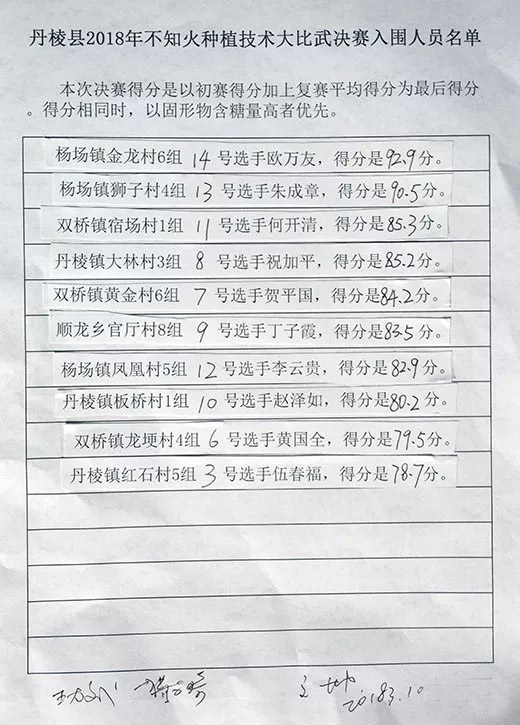 丹棱县2018年不知火种植技术大比武决赛入围人员名单
本次决赛得分是以初赛得分加上复赛平均得分为最后得分
。得分相同时，以固形物含糖量高者优先。
杨场镇金龙村6组 14 号选手欧万友，得分是92.9分。
杨场镇狮子村4组 13 号选手朱成章，得分是90.5分。
双桥镇宿场村1组 11 号选手何开清，得分是85.3分。
丹棱镇大林村3组 8 号选手祝加平，得分是85.2分。
双桥镇黄金村6组 7 号选手贺平国，得分是84.2分。
顺龙乡官厅村8组 9 号选手丁子霞，得分是83.5分。
杨场镇凤凰村5组 12 号选手李云贵，得分是82.9分。
丹棱镇板桥村1组 10 号选手赵泽如，得分是80.2分。
双桥镇龙埂村4组 6 号选手黄国全，得分是79.5分。
丹棱镇红石村5组 3 号选手伍春福，得分是78.7分。
2018.3.10